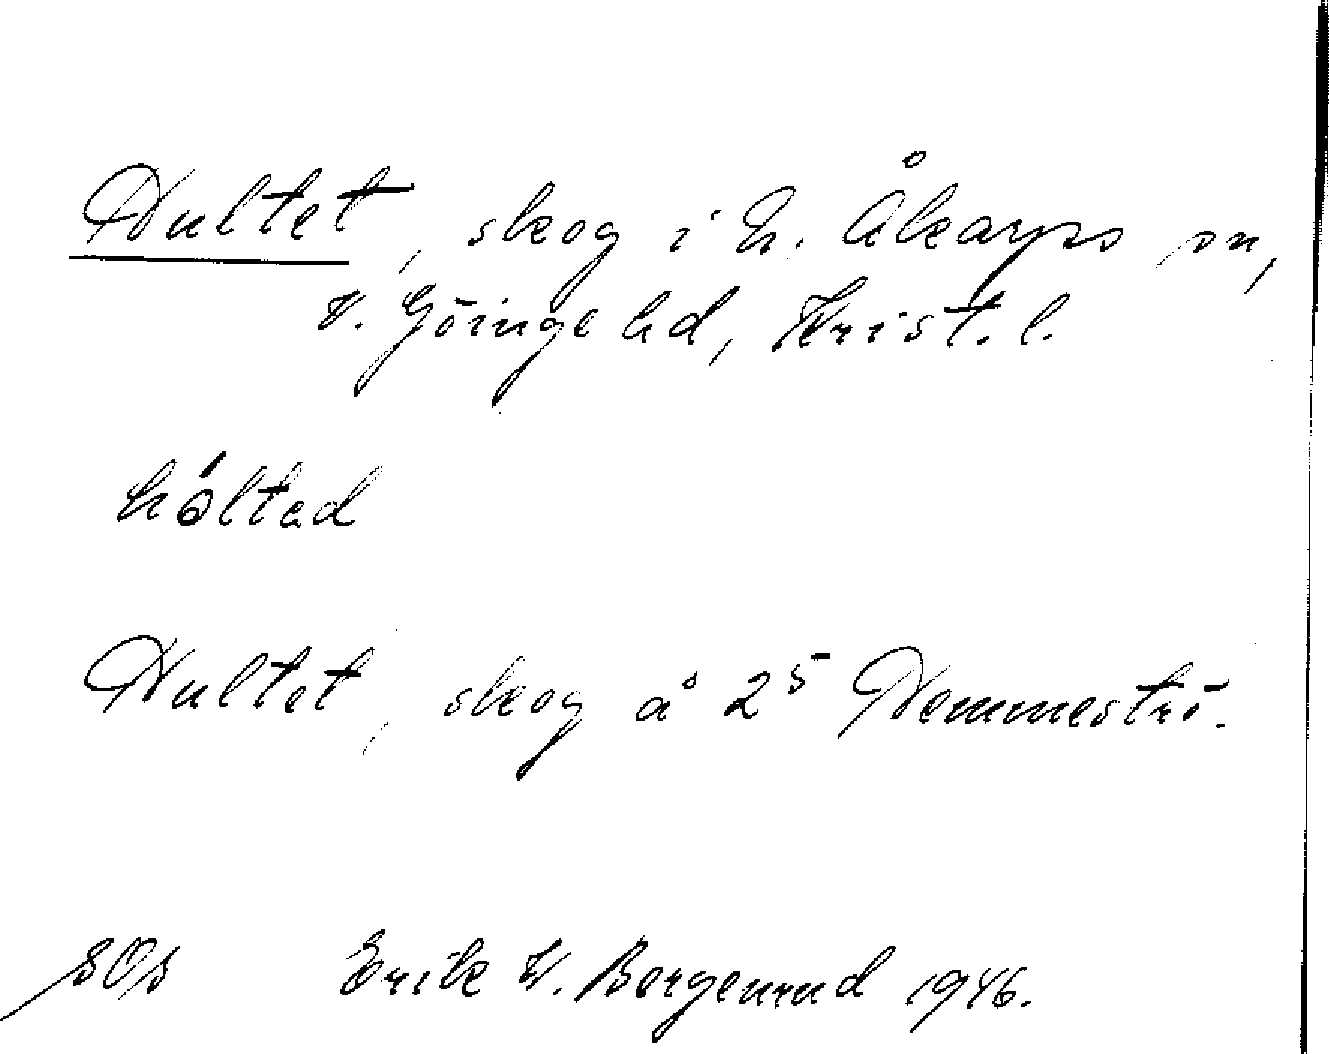 Hultet, skog i N. Åkarps sn,
V. Göinge hd, Krist. l.
hóltad
Hultet, skog å 2⁵ Hemmeströ.
SOs Erik W. Bergenrud 1946.